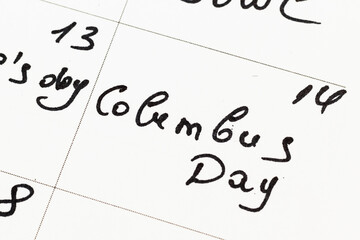 13
's day
14
Columbus
Day
8